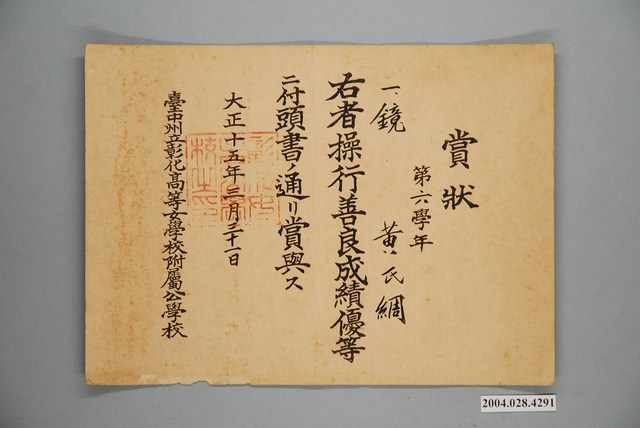 賞狀
第六學年
一、鏡 黃氏綢
右者操行善良成績優等
ニ付頭書ノ通リ賞與ス
大正十五年三月三十一日
臺中州立彰化高等女學校附屬公學校
2004.028.4291